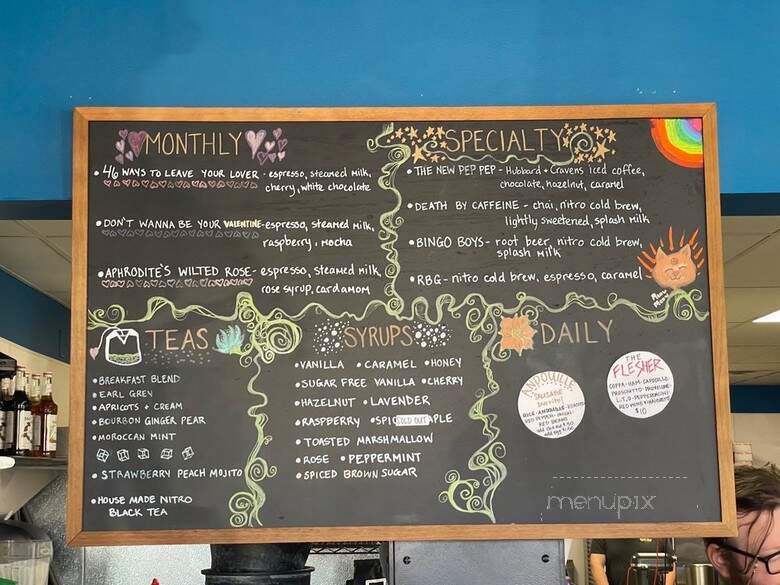 MONTHLY
• 46 WAYS TO LEAVE YOUR LOVER - espresso, steamed milk,
cherry, white chocolate
• DON'T WANNA BE YOUR VALENTINE - espresso, steamed milk,
raspberry, mocha
• APHRODITE'S WILTED ROSE - espresso, steamed milk,
rose syrup, cardamom
SPECIALTY
• THE NEW PEP PEP - Hubbard + Cravens iced coffee,
chocolate, hazelnut, caramel
• DEATH BY CAFFEINE - chai, nitro cold brew,
lightly sweetened, splash milk
• BINGO BOYS - root beer, nitro cold brew,
splash milk
• RBG - nitro cold brew, espresso, caramel
TEAS
• BREAKFAST BLEND
• EARL GREY
• APRICOTS + CREAM
• BOURBON GINGER PEAR
• MOROCCAN MINT
• STRAWBERRY PEACH MOJITO
• HOUSE MADE NITRO
BLACK TEA
SYRUPS
• VANILLA • CARAMEL • HONEY
• SUGAR FREE VANILLA • CHERRY
• HAZELNUT • LAVENDER
• RASPBERRY • SPIC SOLD OUT PLE
• TOASTED MARSHMALLOW
• ROSE • PEPPERMINT
• SPICED BROWN SUGAR
DAILY
ANDOUILLE
SAUSAGE
BURRITO
RICE - ANDOUILLE - ROASTED
RED PEPPER - ONION
RED BEANS
THE
FLESHER
COPPA - HAM - CAPOCOLLO
PROSCIUTTO - PROVOLONE
L.T.O. - PEPPERONCINI
RED WINE VINAIGRETTE
$10
menupix